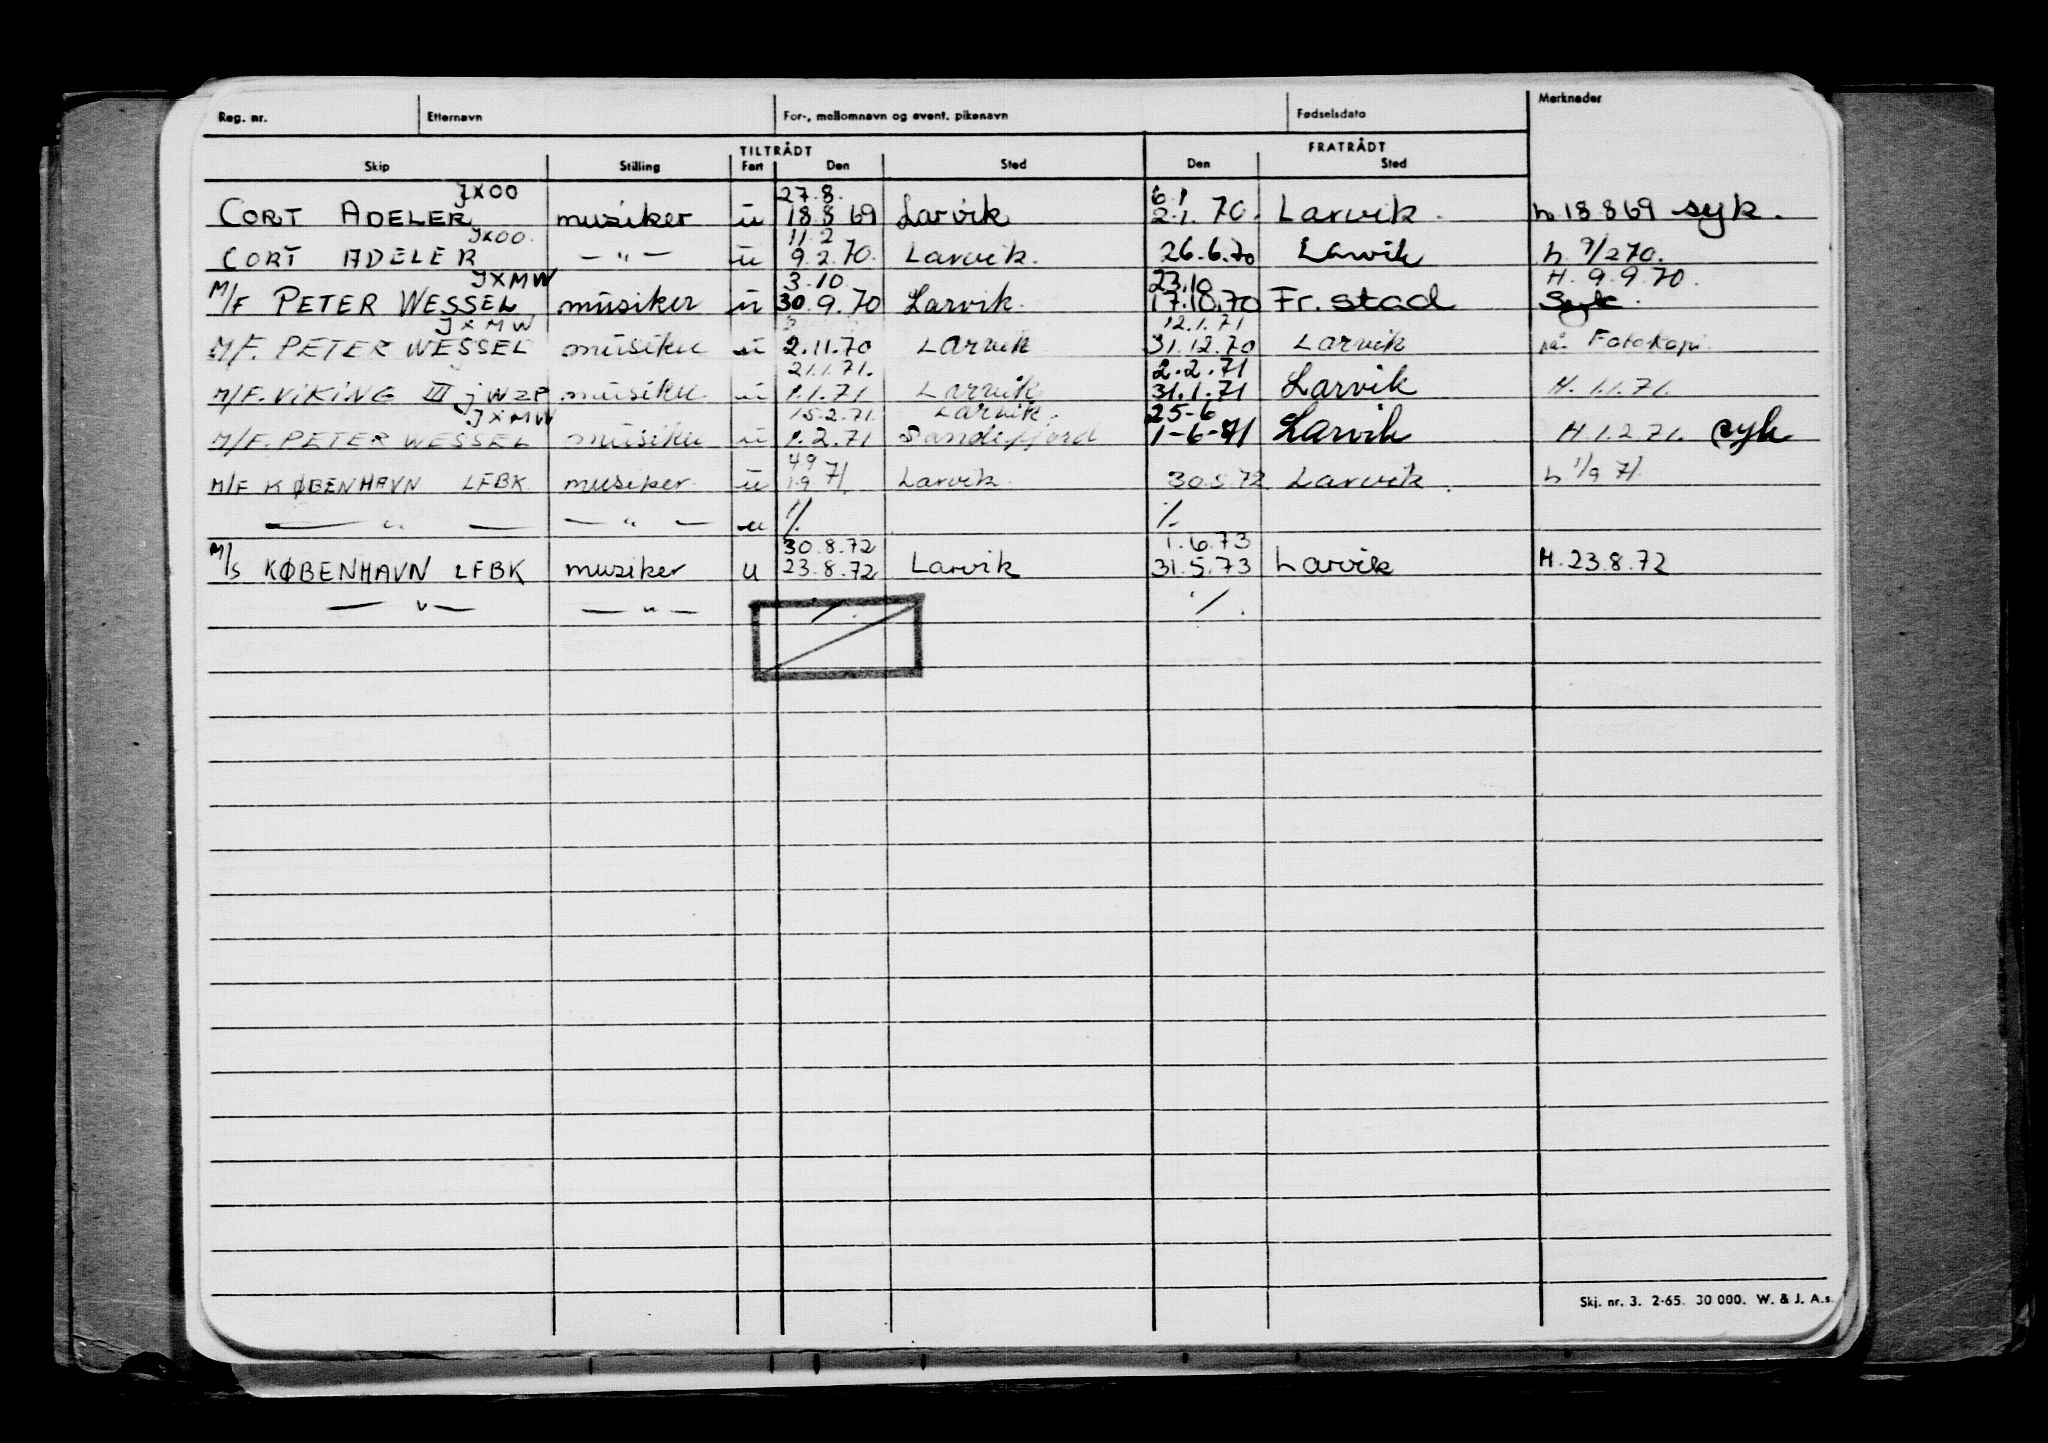 Reg. nr. Etternavn For-, mellomnavn og event. pikenavn Fødselsdato Merknader
TILTRÅDT FRATRÅDT
Skip Stilling Fart Den Sted Den Sted
JXOO 27.8. 6.1
CORT ADELER musiker u 18.8 69 Larvik 2.1. 70. Larvik. h. 18.8 69 syk.
JXOO. 11.2
CORT ADELER — " — u 9.2.70. Larvik. 26.6.70 Larvik h. 9/2 70.
JXMW 3.10 23.10 H. 9.9.70.
M/F PETER WESSEL musiker u 30.9.70 Larvik. 17.10.70 Fr. stad Syk.
JXMW 12.1.71
M/F. PETER WESSEL musiker u 2.11.70 Larvik 31.12.70 Larvik på Fotokopi.
21.1.71. 2.2.71
M/F. VIKING III JWZP musiker u 1.1.71 Larvik 31.1.71 Larvik H. 1.1.71.
JXMW 15.2.71. Larvik. 25-6
M/F. PETER WESSEL musiker u 1.2.71 Sandefjord 1-6-71 Larvik H. 1.2.71. syk
4.9
M/F KØBENHAVN LFBK musiker u 1.9 71. Larvik 30.5.72 Larvik. h 1/9 71.
— " — — " — u % %
30.8.72 1.6.73
M/S KØBENHAVN LFBK musiker u 23.8.72 Larvik 31.5.73 Larvik H. 23.8.72
— " — — " — % %
Skj. nr. 3. 2-65. 30 000. W. & J. A.s.